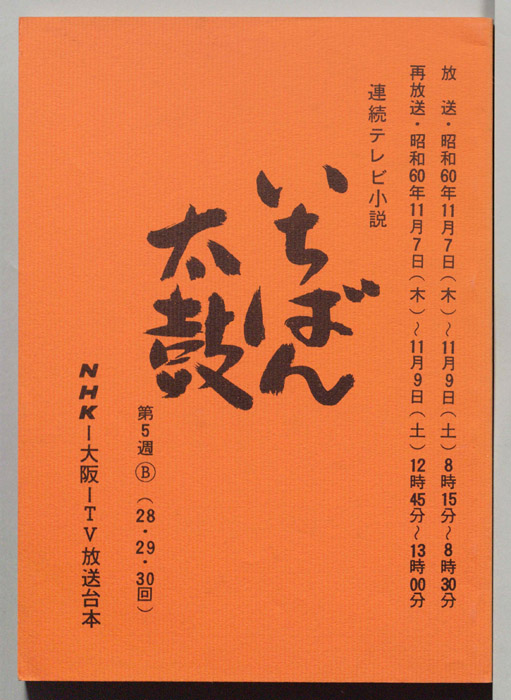 放送・昭和60年11月7日(木)~11月9日(土)8時15分~8時30分
再放送・昭和60年11月7日(木)~11月9日(土)12時45分~13時00分
連続テレビ小説
いちばん
太鼓
第5週Ⓑ(28・29・30回)
NHK-大阪-TV放送台本